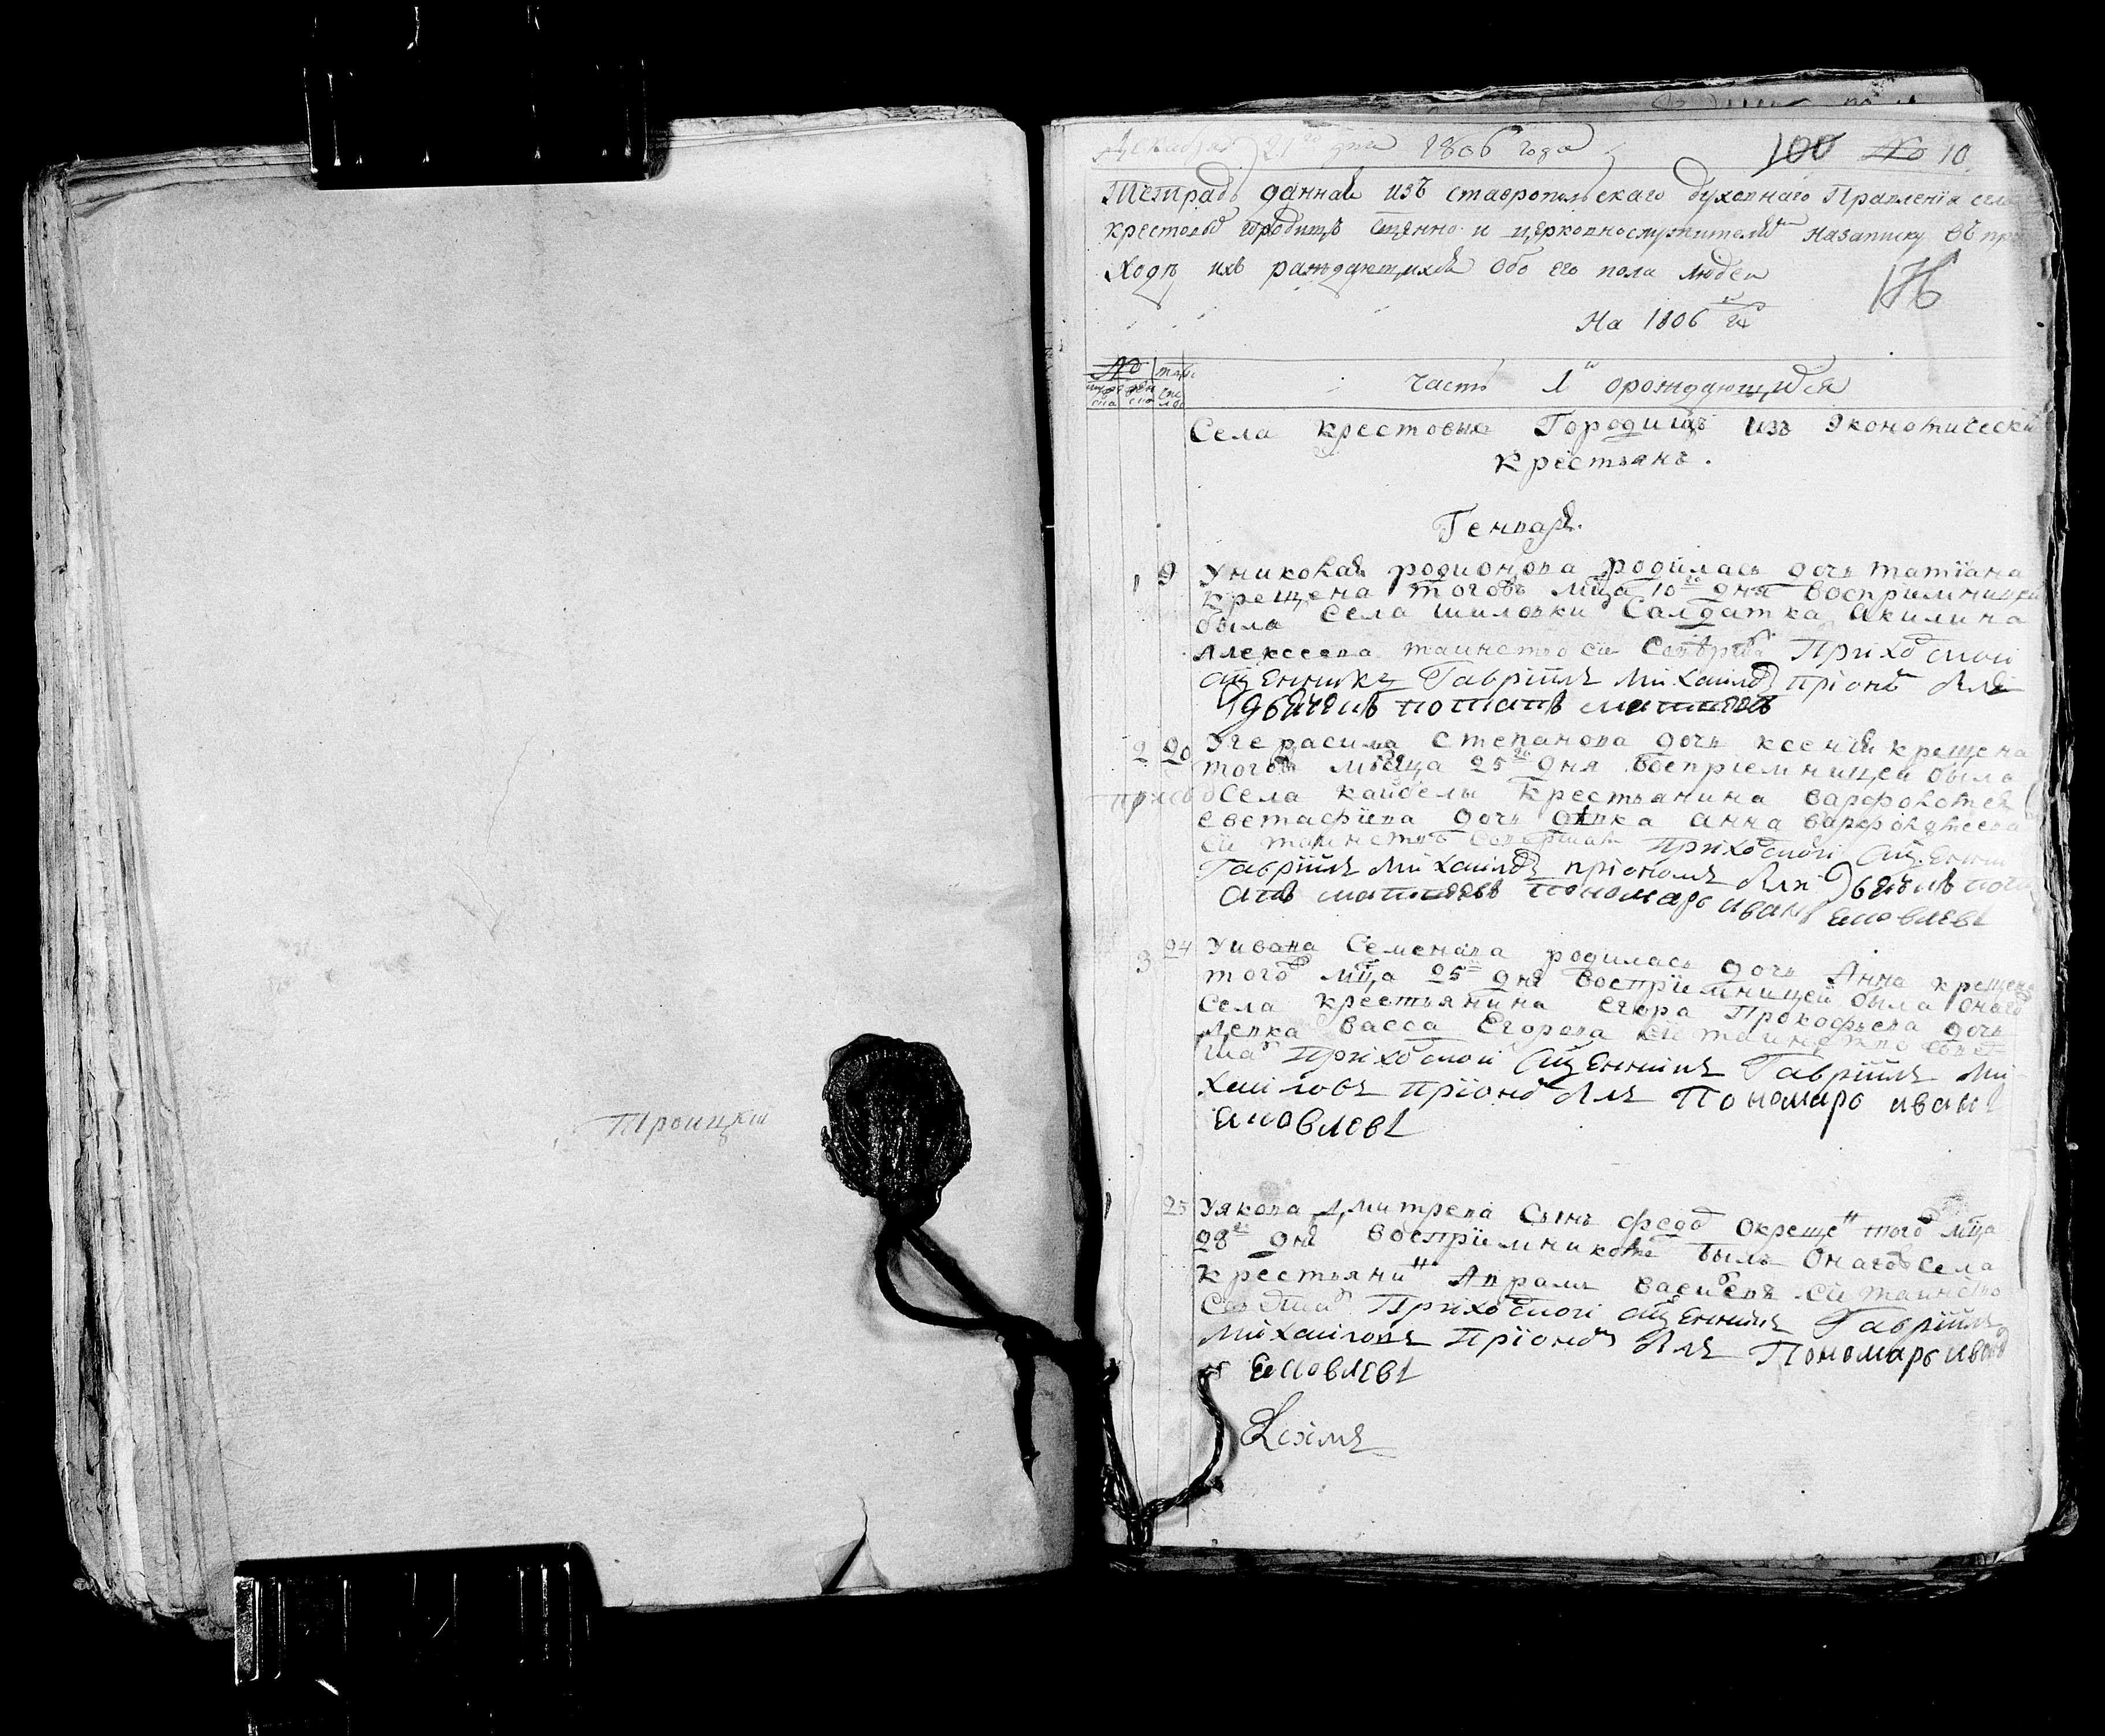 Троицкiй
Декабря 21 дня 1806 года
100 № 10
Тетрадь данная изъ ставропольскаго духовнаго Правленiя села
крестовыхъ городищъ сщенно и церковнослужителемъ на записку въ при
ходѣ ихъ раждающихся обоего пола людей
На 1806 й годъ
№
часть 1 й о рождающихся
Села крестовыхъ Городищъ изъ Экономически
крестьянъ.
Генваря.
1 9 У николая родионова родилась дочь татiана
крещена тогожъ мца 10 го дня восприемницей
была села шиловки Солдатка Акилина
Алексеева таинство сие Приходской
сщенникъ Гаврiилъ Михаилов
дьячекъ потапъ матвеевъ
2 20 У герасима степанова дочь ксенiя крещена
тогожъ мсяца 25 го дня восприемницей была
села кайбелы крестьянина варфоломея
евстафиева дочь девка анна варфоломеева
сiе таинство Приходской Сщенни
Гаврiилъ Михаиловъ дьячекъ пот
апъ матвеевъ пономарь иванъ яковлевъ
3 24 У ивана Семенова родилась дочь Анна крещена
того мца 25 дня восприемницей была онаго
села крестьянина Егора Прокофьева дочь
девка васса Егорова сiе таинство совер
ша Приходской Сщенникъ Гаврiилъ Ми
хаиловъ Пономарь иванъ
яковлевъ
25 У якова Дмитрева сынъ федо креще н того мца
28 го дня восприемникомъ былъ онагожъ села
крестьяни н Аврамъ васильевъ сiе таинство
Приходской сщенникъ Гаврiилъ
Михаиловъ Пономарь иванъ
яковлевъ